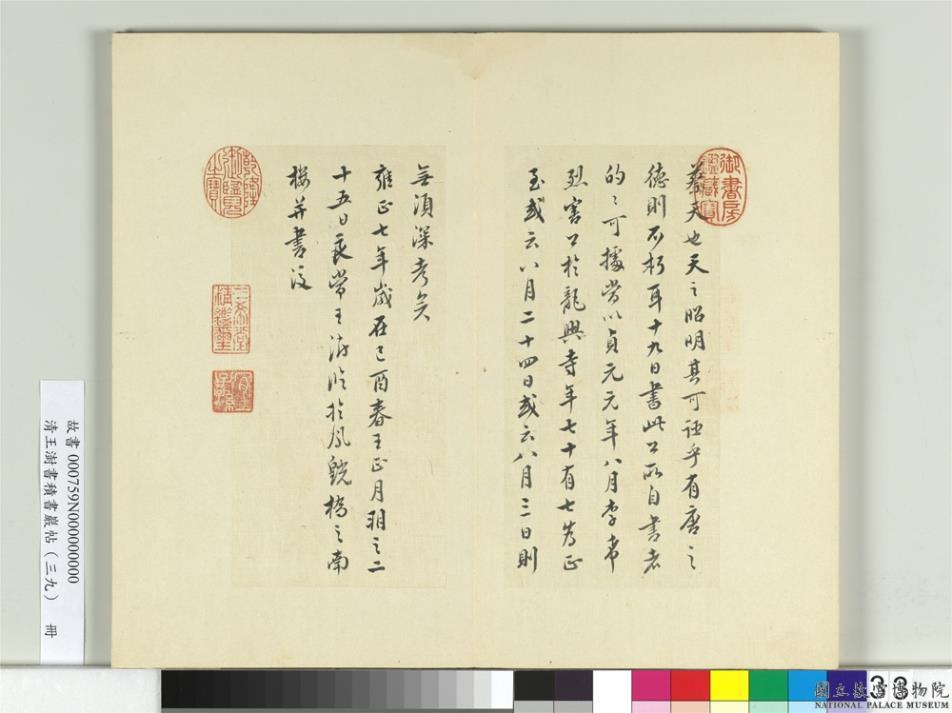 蔡天也天之昭明其可誣乎有唐之
德則不朽耳十九日書此公所自書者
的〻可據當以貞元元年八月李希
烈害公於龍興寺年七十有七為正
至或云八月二十四日或云八月三日則
無須深考矣
雍正七年歲在己酉春王正月朔之二
十五日良常王澍臨於鳳
橋之南
樓并書後
御書房
鑑藏寶
乾隆
御覽
之寶
三希堂
精鑑璽
宜子孫
故書 000759N000000000
清王澍書積書巖帖（三九） 冊
33
國立故宮博物院
NATIONAL PALACE MUSEUM